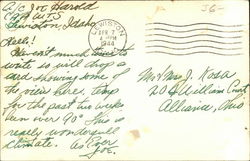 A/C Joe Harold
CPA W.T.S.
Lewiston, Idaho
LEWISTON
1944
Hello!
Haven't much time to
write so will drop a
card showing some of
the view here, temp
for the past two weeks
been over 90° This is
really wonderful
climate. As Ever
Joe.
Mr & Mrs J. Rosa
204 William Court
Alliance, Ohio